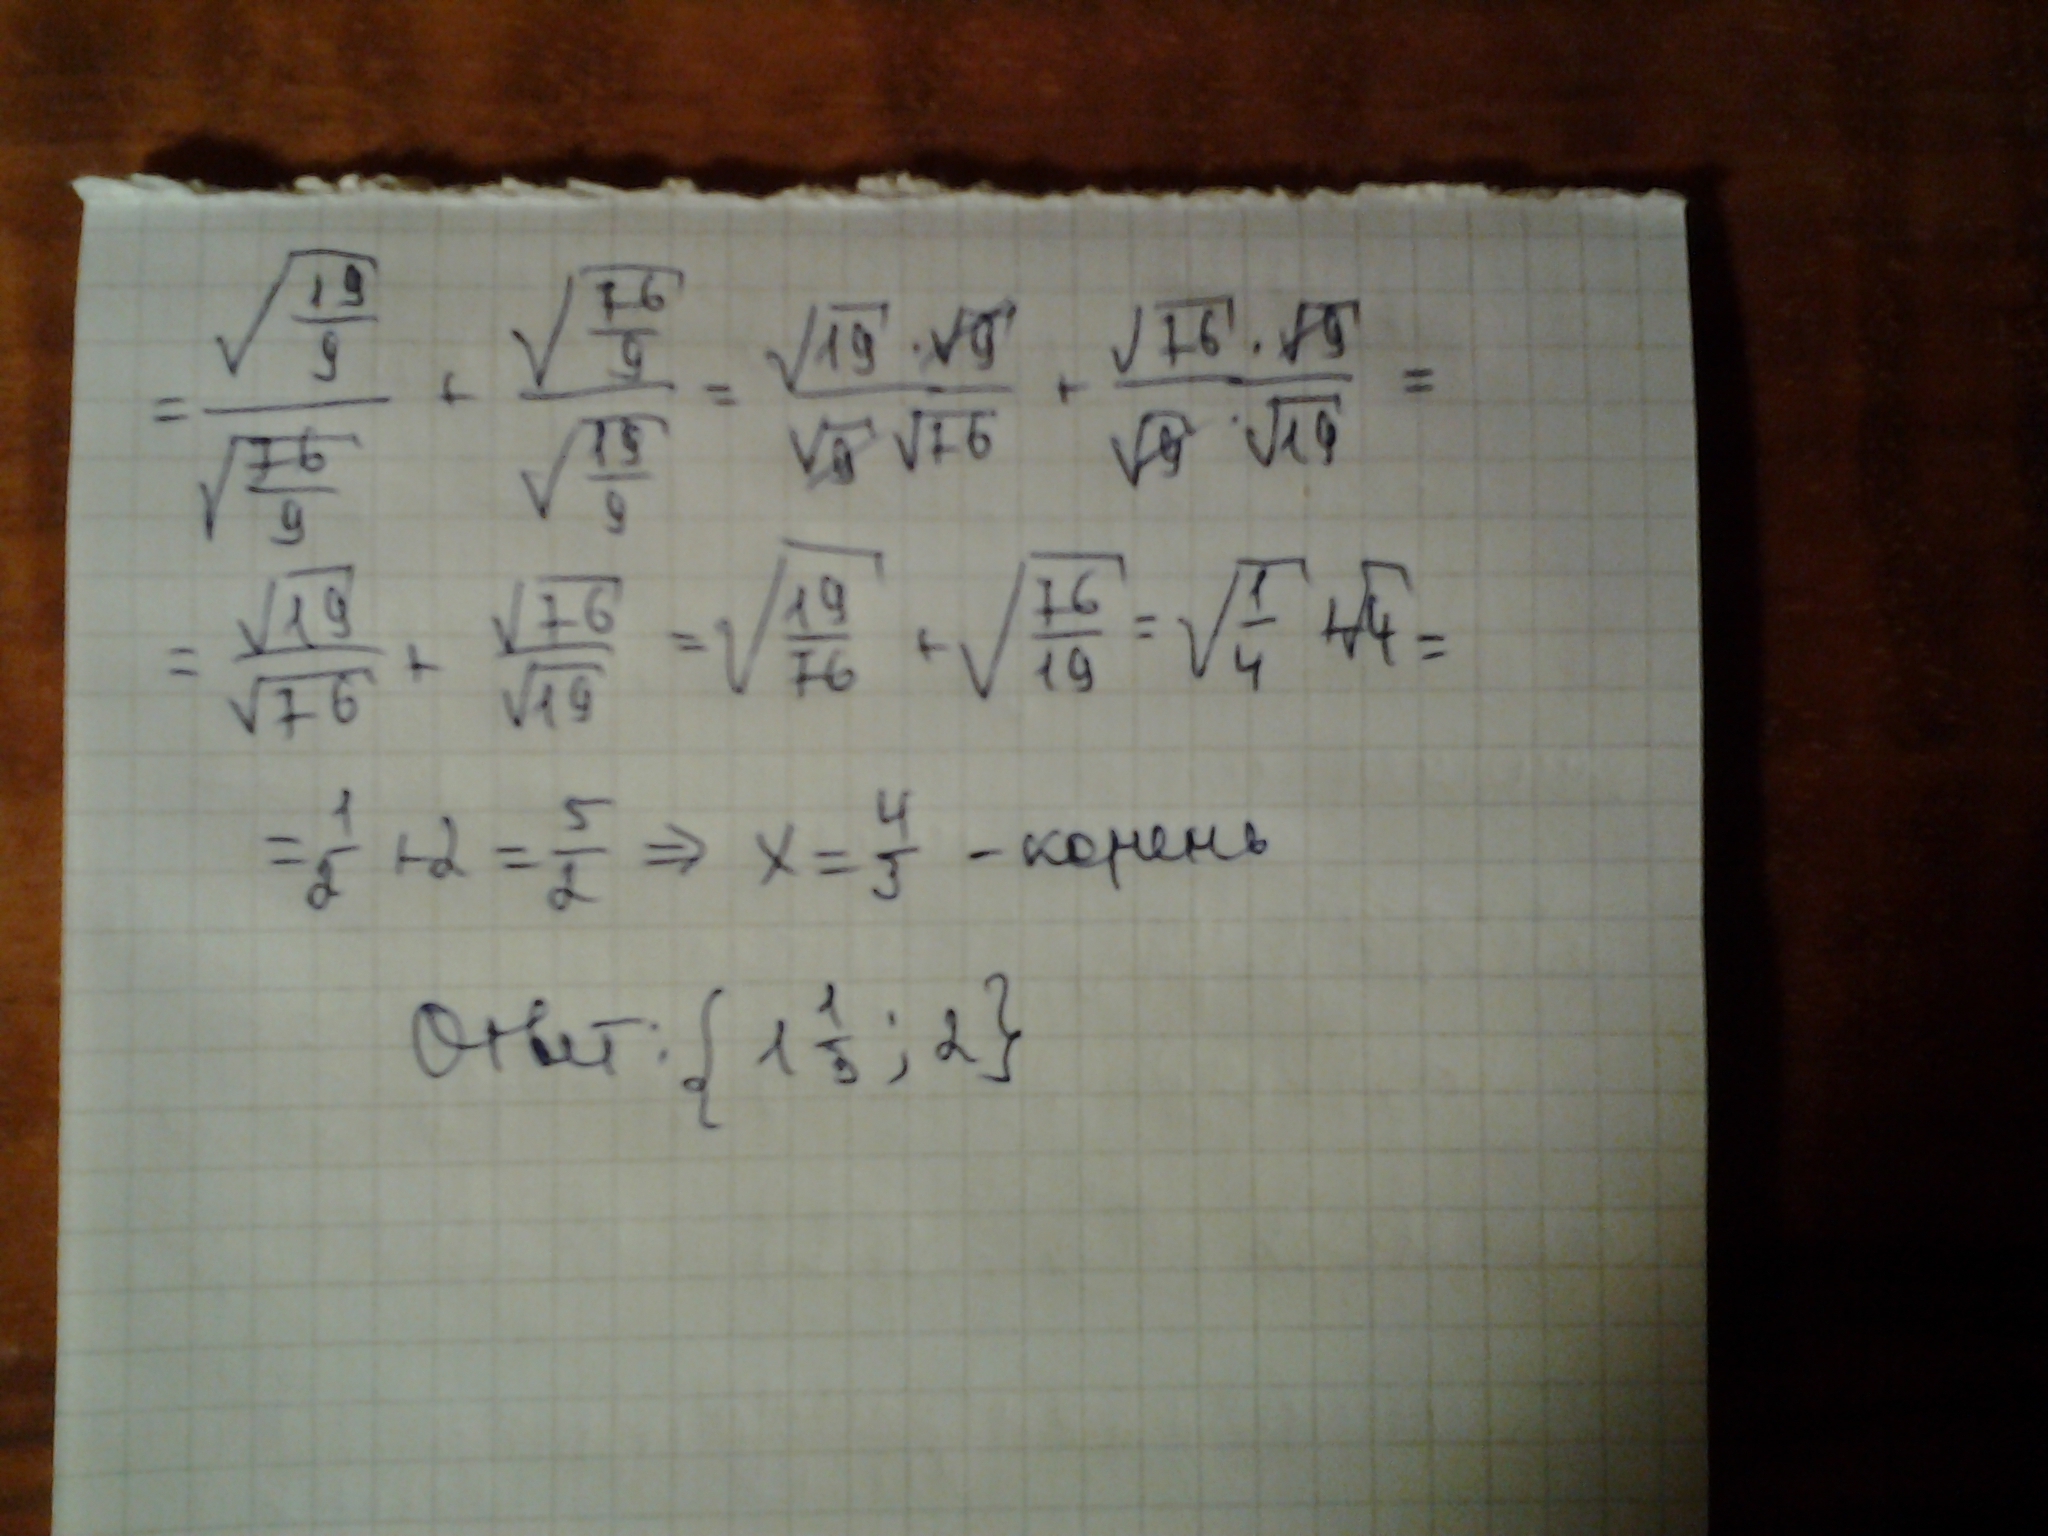 = √(19/9) / √(76/9) + √(76/9) / √(19/9) = (√19 · √9) / (√9 √76) + (√76 · √9) / (√9 · √19) =
= √19/√76 + √76/√19 = √(19/76) + √(76/19) = √(1/4) + √4 =
= 1/2 + 2 = 5/2 ⇒ x = 4/3 - корень
Ответ: {1 1/3; 2}